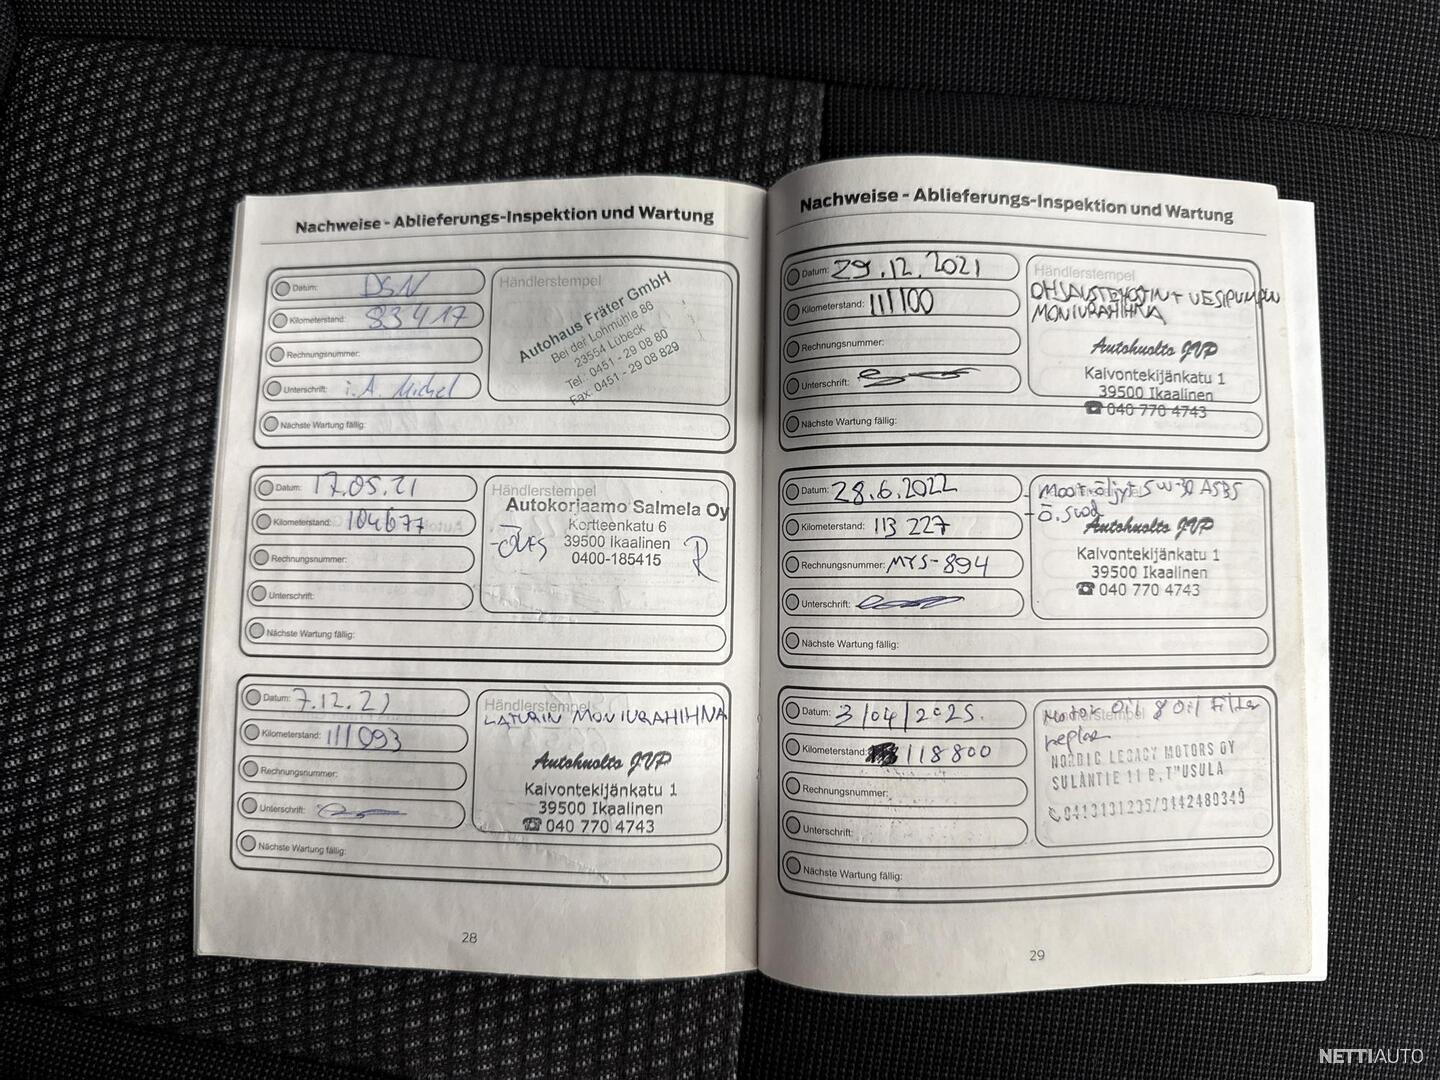 Nachweise - Ablieferungs-Inspektion und Wartung
Datum: DSN
Kilometerstand: 83417
Rechnungsnummer:
Unterschrift: i.A. Michel
Nächste Wartung fällig:
Händlerstempel
Autohaus Fräter GmbH
Bei der Lohmühle 86
23554 Lübeck
Tel.: 0451 - 29 08 80
Fax: 0451 - 29 08 829
Datum: 17.05.21
Kilometerstand: 104677
Rechnungsnummer:
Unterschrift:
Nächste Wartung fällig:
Händlerstempel
Autokorjaamo Salmela Oy
Kortteenkatu 6
39500 Ikaalinen
0400-185415
Datum: 7.12.21
Kilometerstand: 111093
Rechnungsnummer:
Unterschrift:
Nächste Wartung fällig:
Händlerstempel
LATURIN MONIURAHIHNA
Autohuolto JVP
Kalvontekijänkatu 1
39500 Ikaalinen
☎ 040 770 4743
28
Nachweise - Ablieferungs-Inspektion und Wartung
Datum: 29.12.2021
Kilometerstand: 111100
Rechnungsnummer:
Unterschrift:
Nächste Wartung fällig:
Händlerstempel
VESIPUMPUN
MONIURAHIHNA
Autohuolto JVP
Kalvontekijänkatu 1
39500 Ikaalinen
☎ 040 770 4743
Datum: 28.6.2022
Kilometerstand: 113 227
Rechnungsnummer: MYS-894
Unterschrift:
Nächste Wartung fällig:
- Moot.öljyt 5W-30
- Ö.suod
Autohuolto JVP
Kalvontekijänkatu 1
39500 Ikaalinen
☎ 040 770 4743
Datum: 3/04/2025.
Kilometerstand: 118800
Rechnungsnummer:
Unterschrift:
Nächste Wartung fällig:
Händlerstempel
Motor Oil & Oil Filter
NORDIC LEGACY MOTORS OY
SULANTIE 11 B, TUUSULA
29
NETTIAUTO